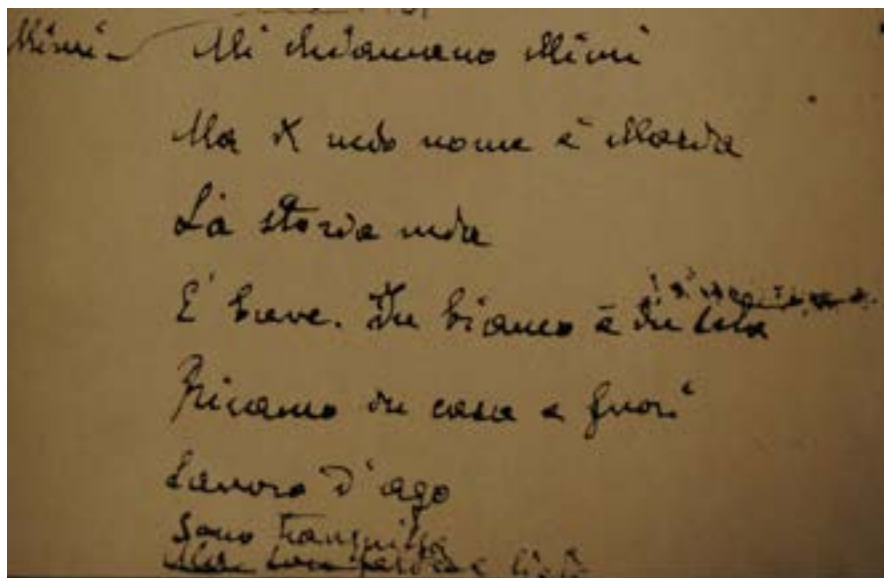 Mimì - Mi chiamano Mimì
Ma il mio nome è Maria
La storia mia
E' breve. In bianco e in seta
Ricamo in casa e fuori
Lavoro d'ago
Sono tranquilla
e lieta